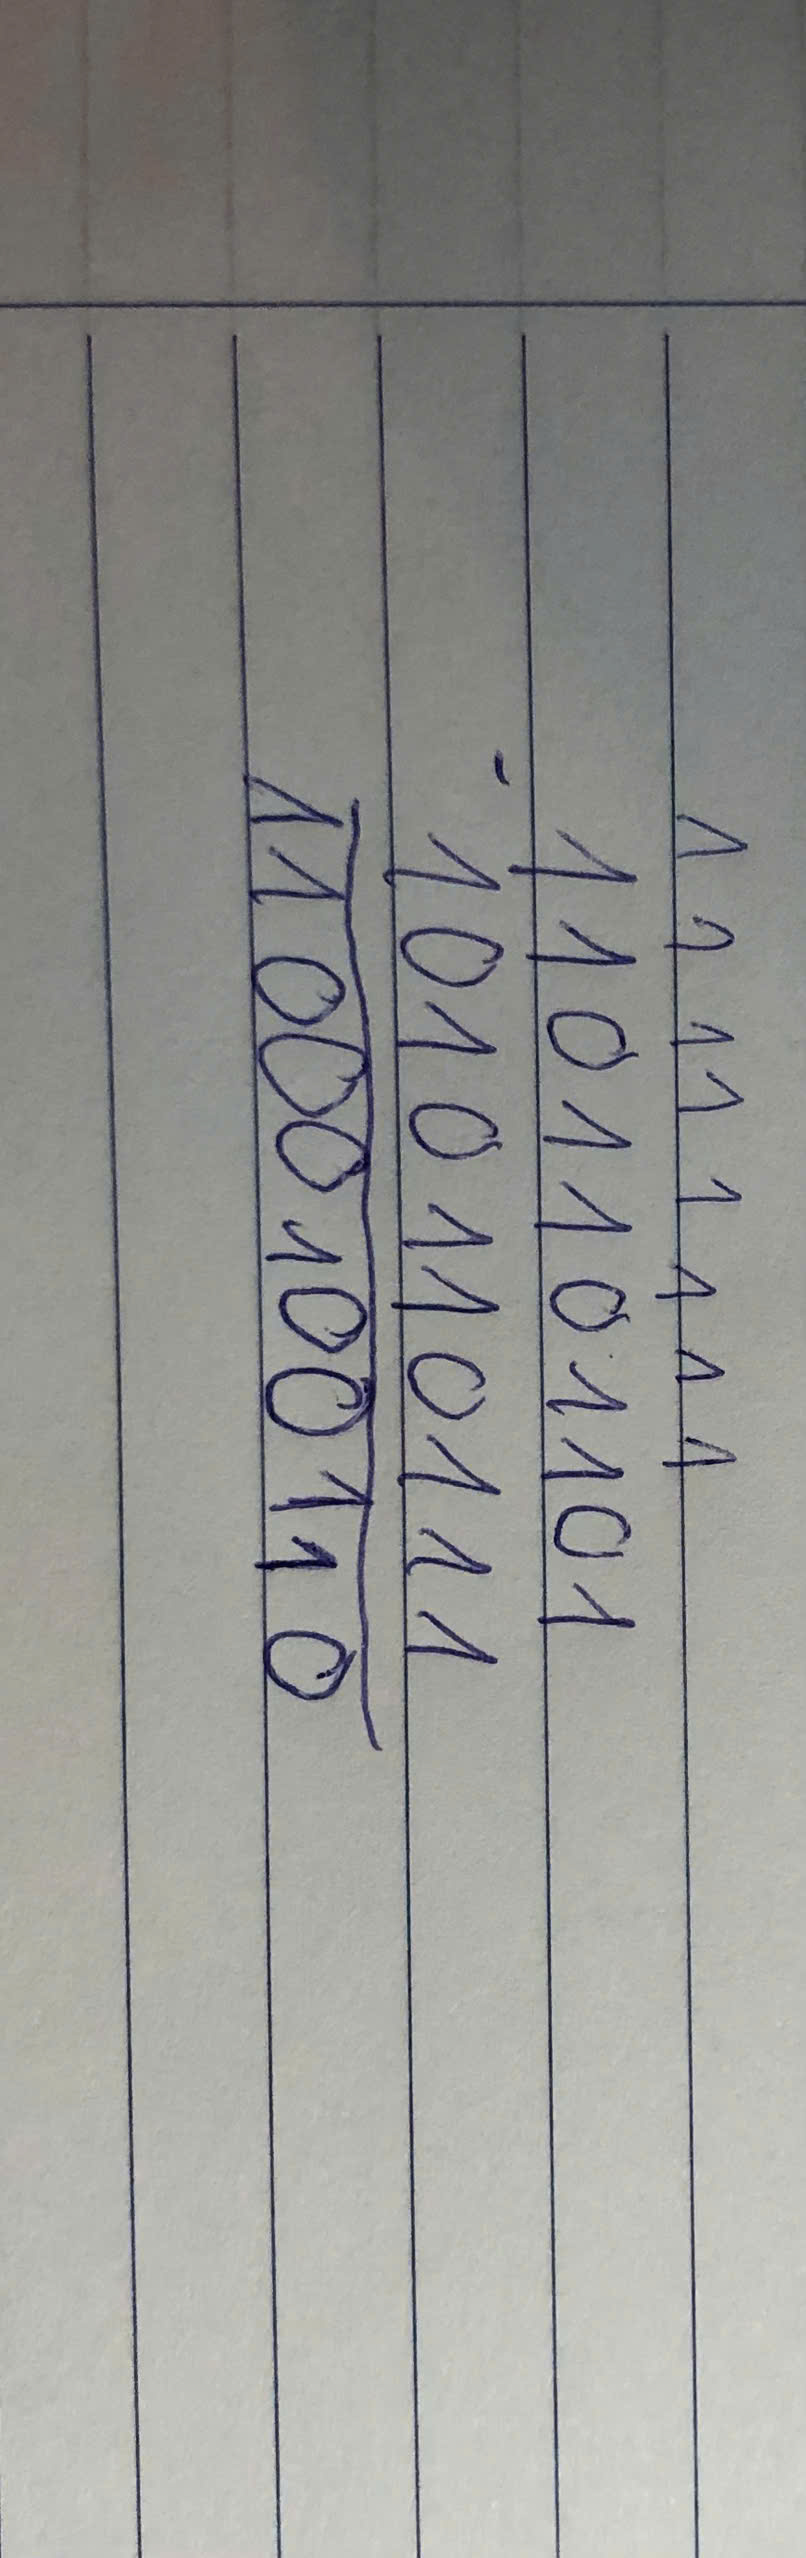 1 1 1 1 1 1 1 1
1101101101
- 1010110111
11000100110